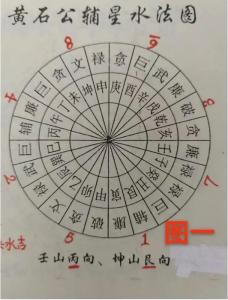 黄石公辅星水法图
8
4
6
2
7
5
1
辅 廉 巨 贪 文 禄 巨 武 廉 破 贪 廉 禄 禄 巨 辅 廉 破 贪 文 禄 武 巨
丙 午 丁 未 坤 申 庚 酉 辛 戌 乾 亥 壬 子 癸 丑 艮 寅 甲 卯 乙 辰 巽 巳
水吉
图一
壬山丙向、坤山艮向